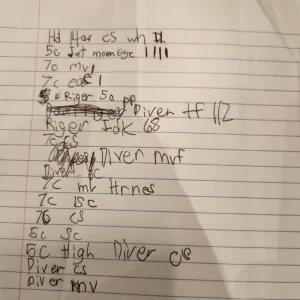 Hd Har cs wh II
5c fat moon eye IIII
7c mv I
7c ea I
Riger 50 pp
Diver tf 112
Riger Idk 68
7c cs
Diver mvf
Diver sc
7c mv Hrnes
7c ISC
7c cs
5c sc
5c High Diver cs
Diver cs
Diver mv